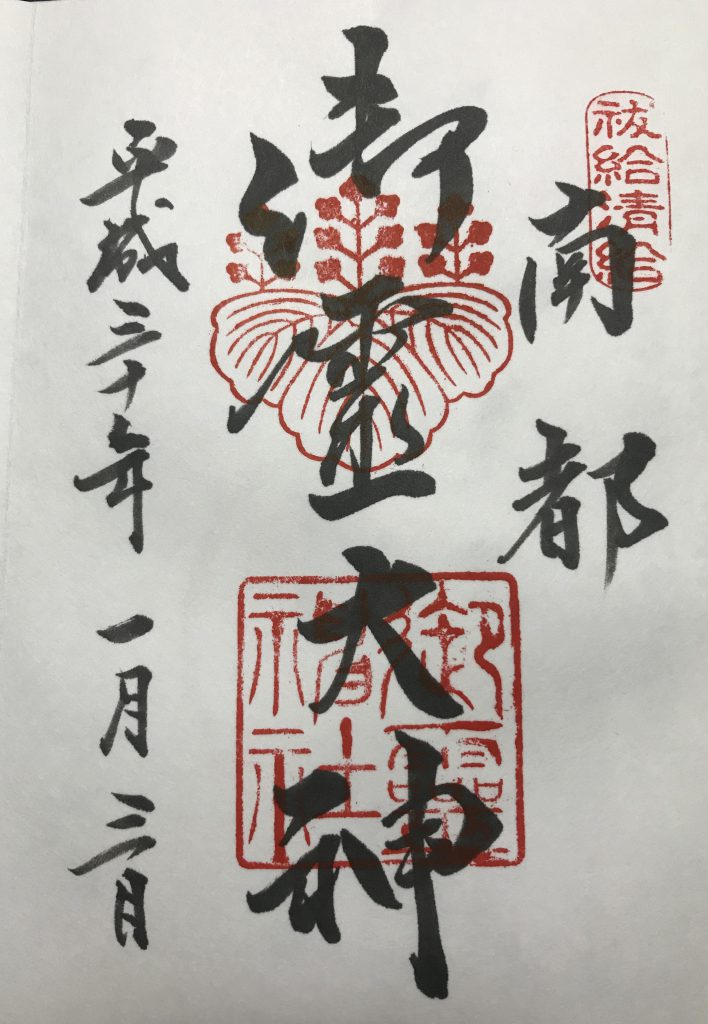 祓給清給
南都
御霊大神
御霊神社
平成三十年 一月三日